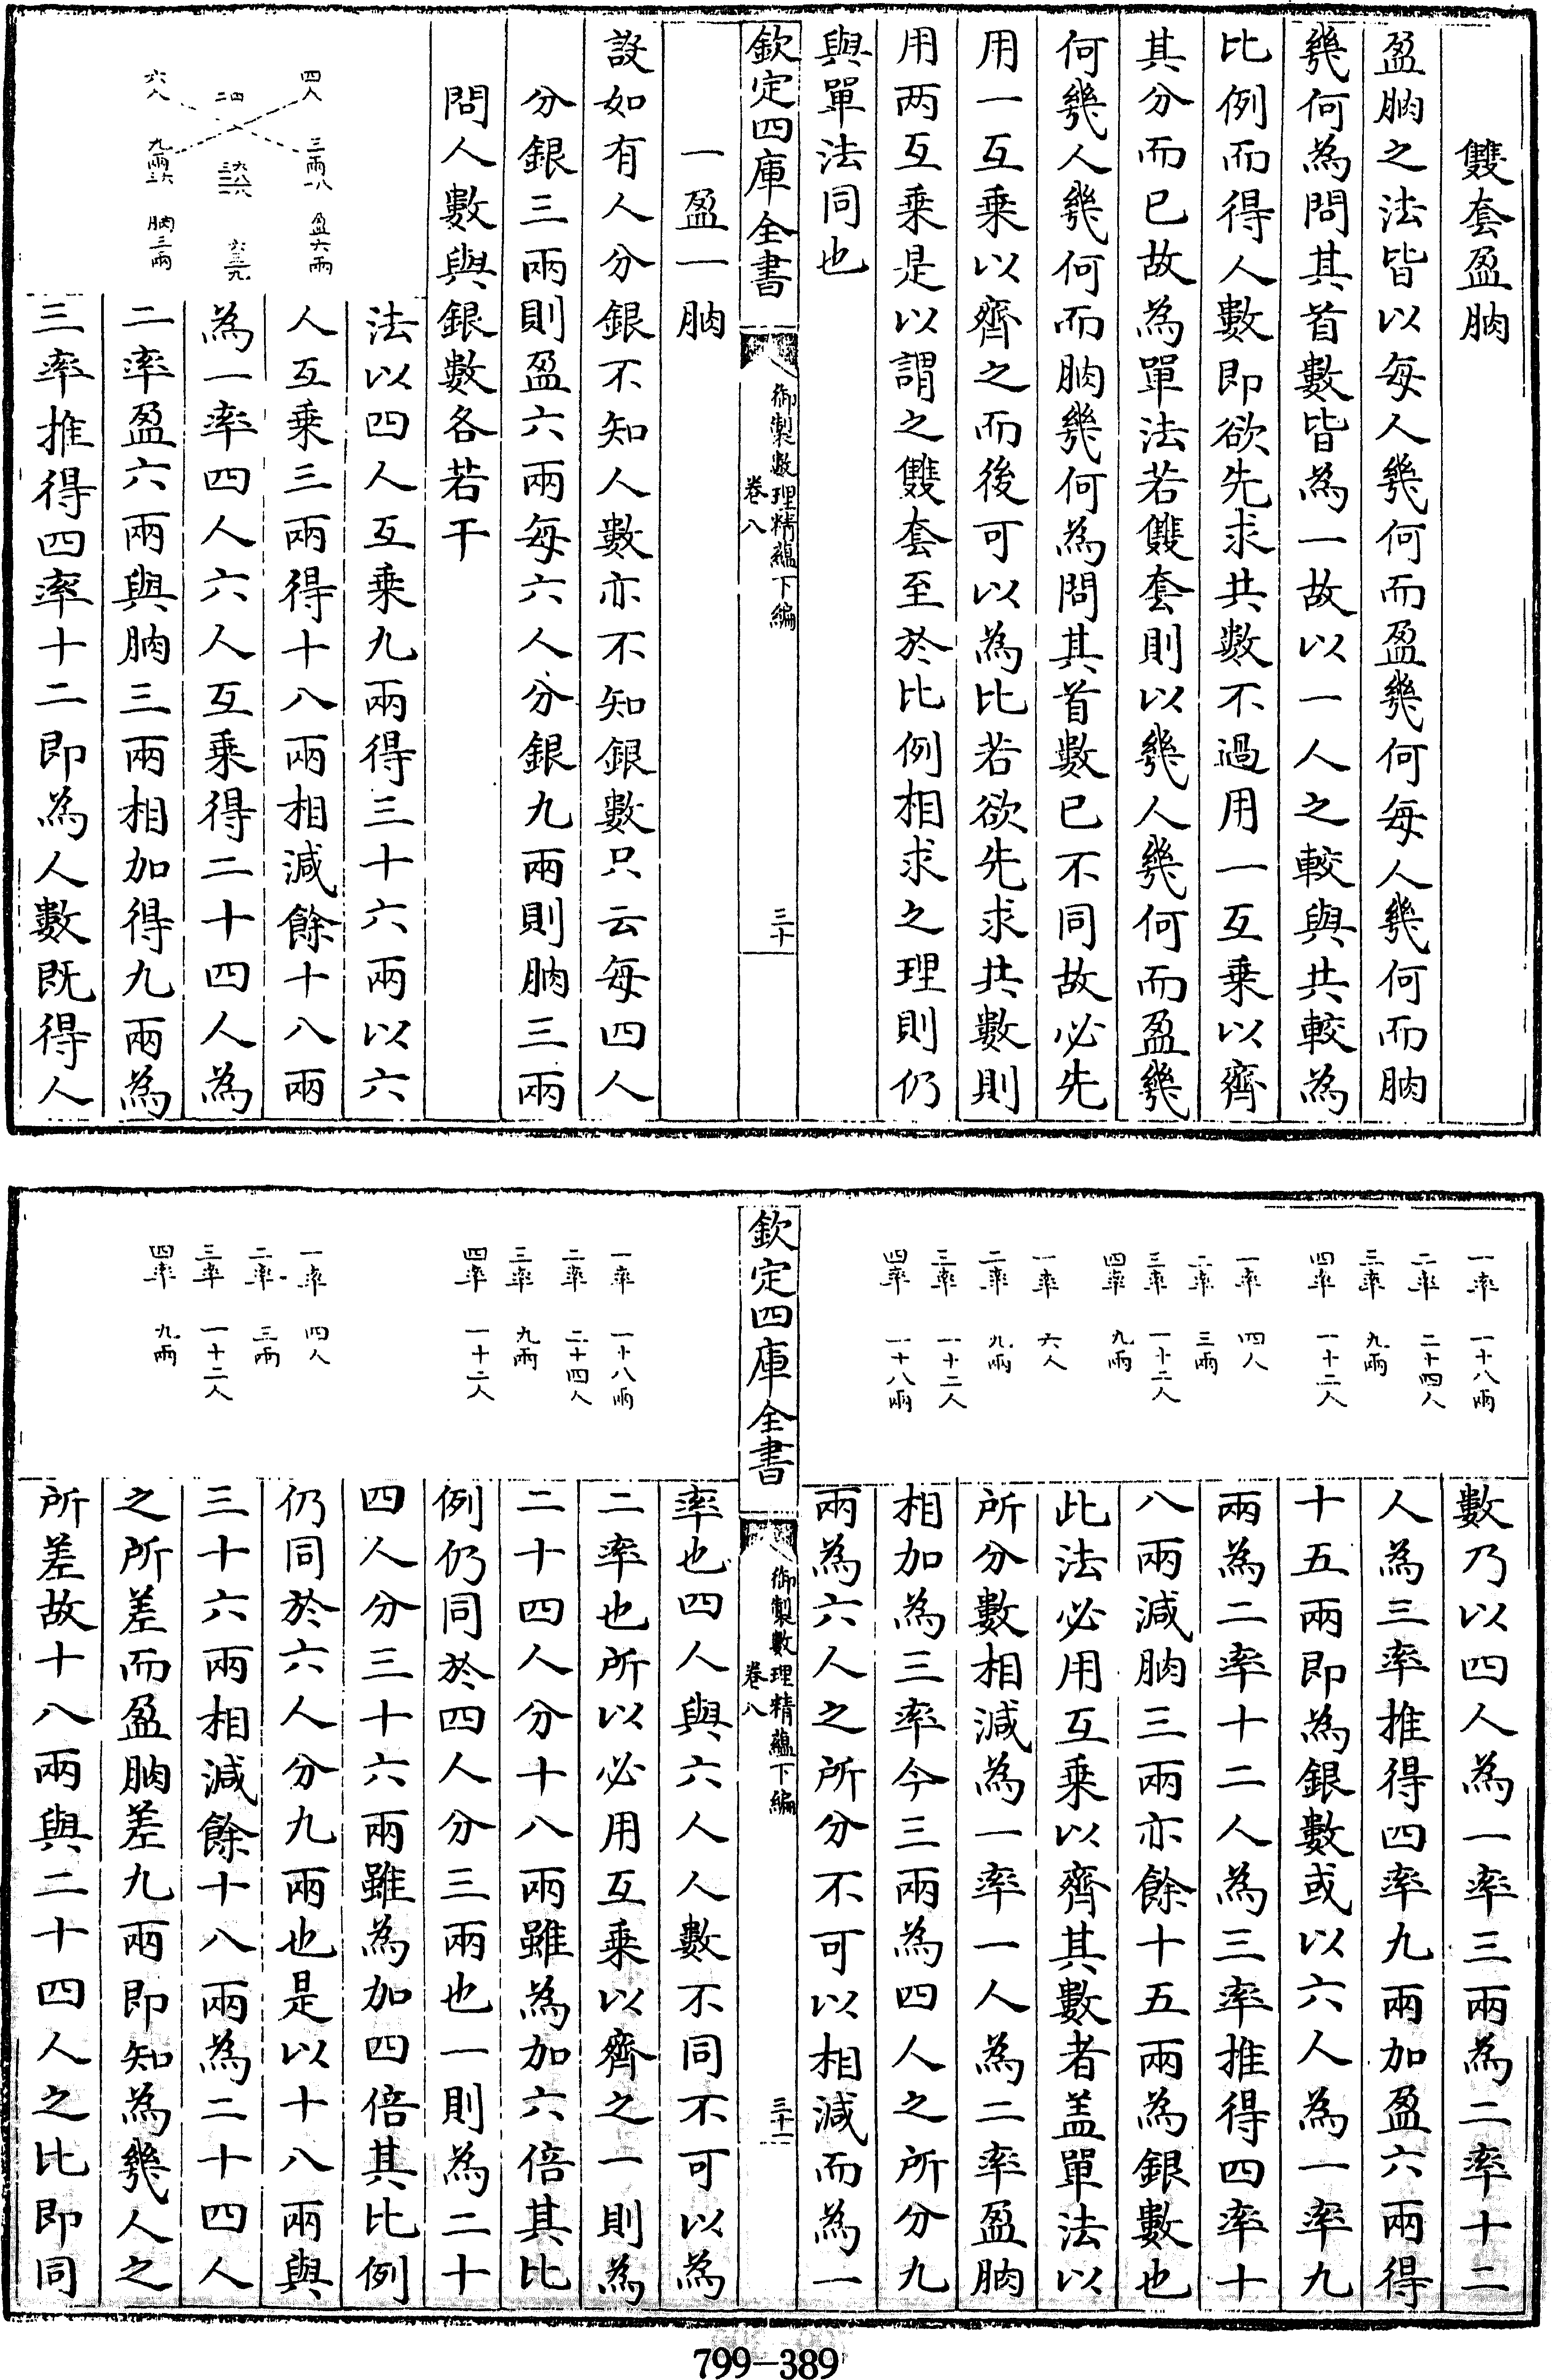 雙套盈朒
盈朒之法皆以每人㡬何而盈㡬何每人㡬何而朒
㡬何為問其首數皆為一故以一人之較與共較為
比例而得人數即欲先求共數不過用一互乘以齊
其分而已故為單法若雙套則以㡬人㡬何而盈㡬
何㡬人㡬何而朒㡬何為問其首數已不同故必先
用一互乘以齊之而後可以為比若欲先求共數則
用两互乘是以謂之雙套至於比例相求之理則仍
與單法同也
欽定四庫全書
御製數理精蘊下編
卷八
三十
一盈一朒
設如有人分銀不知人數亦不知銀數只云每四人
分銀三兩則盈六兩每六人分銀九兩則朒三兩
問人數與銀數各若干
四人 三兩一八 盈六兩
二四
六人 九兩三六 朒三兩
法以四人互乘九兩得三十六兩以六
人互乘三兩得十八兩相減餘十八兩
為一率四人六人互乘得二十四人為
二率盈六兩與朒三兩相加得九兩為
三率推得四率十二即為人數既得人
一率 一十八兩
二率 二十四人
三率 九兩
四率 一十二人
一率 四人
二率 三兩
三率 一十二人
四率 九兩
一率 六人
二率 九兩
三率 一十二人
四率 一十八兩
數乃以四人為一率三兩為二率十二
人為三率推得四率九兩加盈六兩得
十五兩即為銀數或以六人為一率九
兩為二率十二人為三率推得四率十
八兩減朒三兩亦餘十五兩為銀數也
此法必用互乘以齊其數者盖單法以
所分數相減為一率一人為二率盈朒
相加為三率今三兩為四人之所分九
兩為六人之所分不可以相減而為一
欽定四庫全書
御製數理精蘊下編
卷八
三十一
一率 一十八兩
二率 二十四人
三率 九兩
四率 一十二人
一率 四人
二率 三兩
三率 一十二人
四率 九兩
率也四人與六人人數不同不可以為
二率也所以必用互乘以齊之一則為
二十四人分十八兩雖為加六倍其比
例仍同於四人分三兩也一則為二十
四人分三十六兩雖為加四倍其比例
仍同於六人分九兩也是以十八兩與
三十六兩相減餘十八兩為二十四人
之所差而盈朒差九兩即知為㡬人之
所差故十八兩與二十四人之比即同
799-389